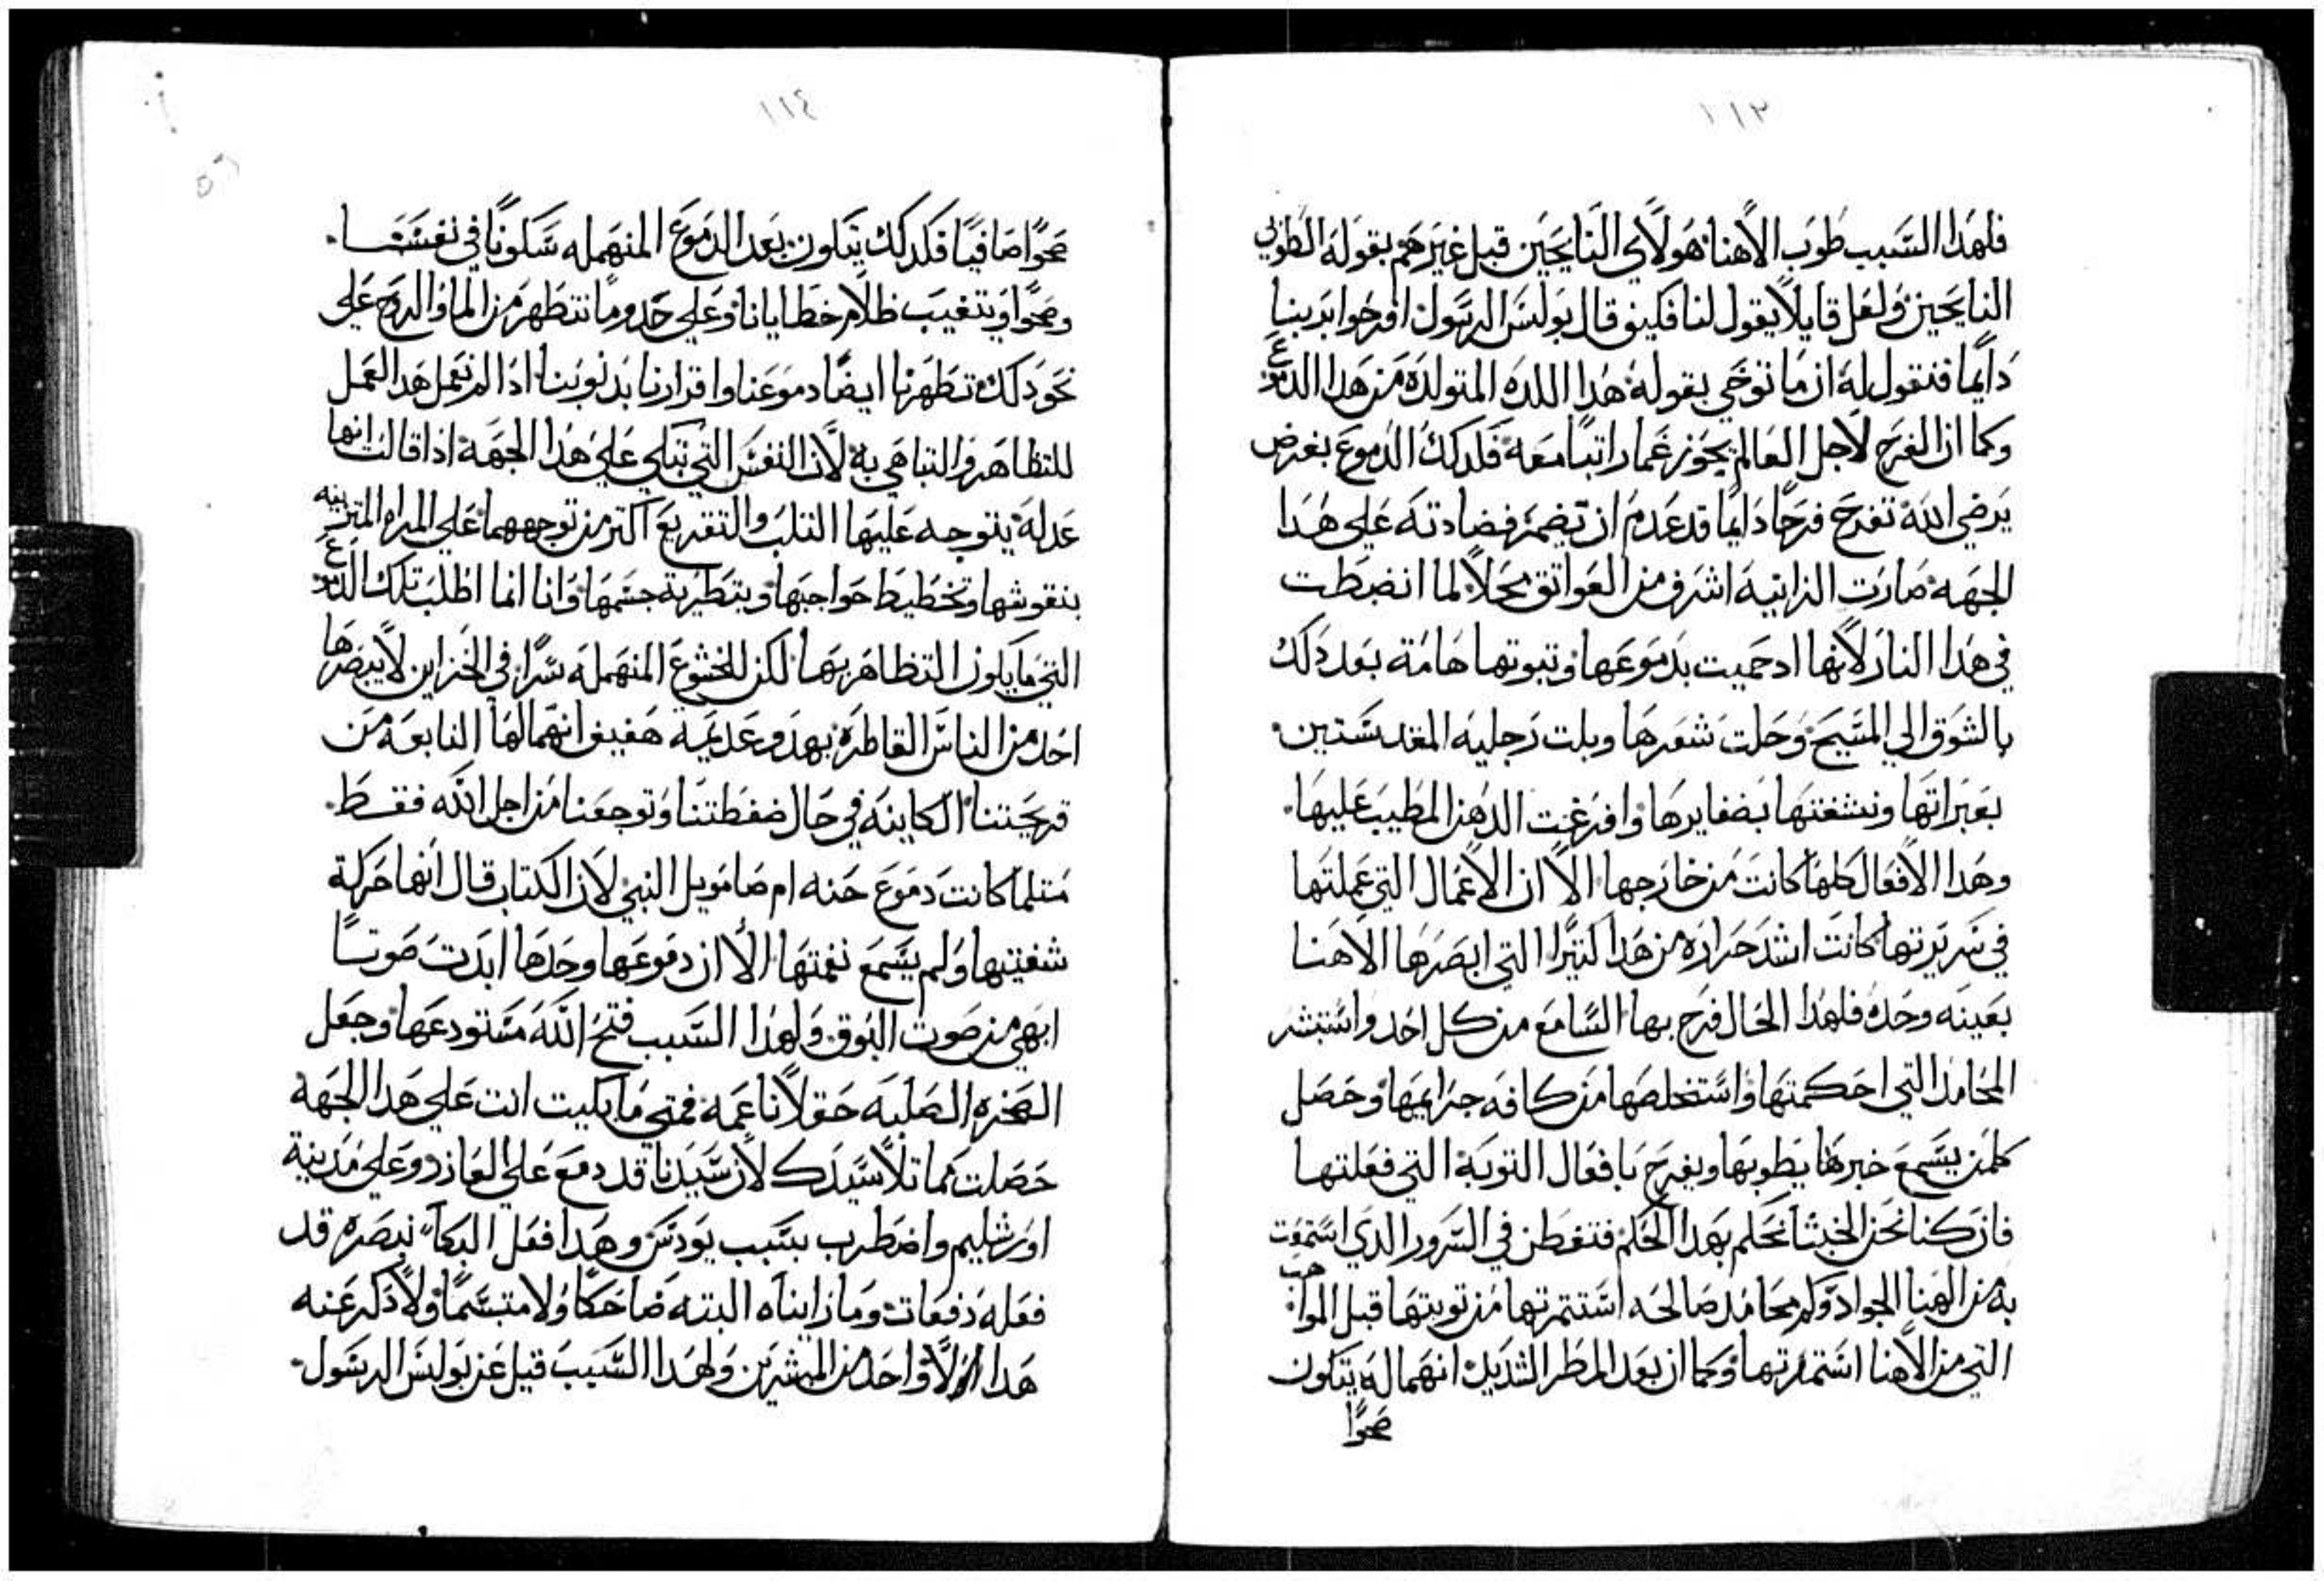 ١١٣
فلهدا السبب طوب الاهنا هولاي النايحين قبل غيرهم بقوله الطوبي
النايحين ولعل قايلا يقول لنا فكيف قال بولس الرسول افرحوا بربنا
دايما فنقول له ان ما توخي بقوله هدا اللده المتولده من هدا الدموع
وكما ان الفرح لاجل العالم يحوز غما راتبا معه فلدلك الدموع بغرض
يرضي الله تفرح فرحا دايما قد عدم ان تضمر فضادته علي هدا
الجهه صارت الزانيه اشرف من العواتق محلا لما انضبطت
في هدا النار لانها ادحميت بدموعها وتبوتها هامة بعد دلك
بالشوق الي المسيح وحلت شعرها وبلت رجليه المقدستين
بعبراتها ونشفتها بضفايرها وافرغت الدهن المطيب عليها
وهدا الافعال كلها كانت من خارجها الا ان الاعمال التي عملتها
في سريرتها كانت اشد حراره من هدا كتيرا التي ابصرها الاهنا
بعينه وحده فلهدا الحال فرح بها السامع من كل احد واستبشر
المحامد التي احكمتها واستخلصها من كافه جرايمها وحصل
كلمن يسمع خبرها يطوبها ويفرح بافعال التوبة التي فعلتها
فان كنا نحن الخبثا نحكم بهدا الحكم فتفطن في السرور الدي استمتعت
به من الهنا الجواد وكم محامد صالحه استتمرتها من توبتها قبل المواهب
التي من الاهنا استتمرتها وكما ان بعد المطر الشديد انهماله يتكون
صحوا
١١٤
صحوا صافيا فكدلك يتكون بعد الدموع المنهمله سكونا في نفسنا
وصحوا وتتغيب ظلام خطايانا وعلي حدو ما نتطهر من الما والروح علي
نحو دلك تطهرنا ايضا دموعنا واقرارنا بدنوبنا ادا لم نعمل هدا العمل
للتظاهر والتباهي به لان النفس التي تبكي علي هدا الجهه ادا قالت انها
عدله يتوجه عليها التلب والتقريع اكتر من توجههما علي المراه المتزينه
بنقوشها وتخطيط حواجبها وبتطرية جسمها وانا انما اطلب تلك الدموع
التي ما يكون التظاهر بها لكن للخشوع المنهمله سرا في الخزاين لا يبصرها
احد من الناس القاطره بهدو عديمة هفيف انهمالها النابعة من
قريحتنا الكاينه في حال ضغطتنا وتوجعنا من اجل الله فقط
متلما كانت دموع حنه ام صامويل النبي لان الكتاب قال انها حركة
شفتيها ولم يسمع نغمتها الا ان دموعها وحدها ابدت صوتا
ابهي من صوت البوق ولهدا السبب فتح الله مستودعها وجعل
الصخره الصلبه حقولا ناعمه فمتي ما بكيت انت علي هدا الجهه
حصلت مماتلا سيدك لان سيدنا قد دمع علي العازر وعلي مدينة
اورشليم واضطرب بسبب يودس وهدا فعل البكا نبصره قد
فعله دفعات وما رايناه البته ضاحكا ولا متبسما ولا دكر عنه
هدا ولا واحد من المبشرين ولهدا السبب قيل عن بولس الرسول